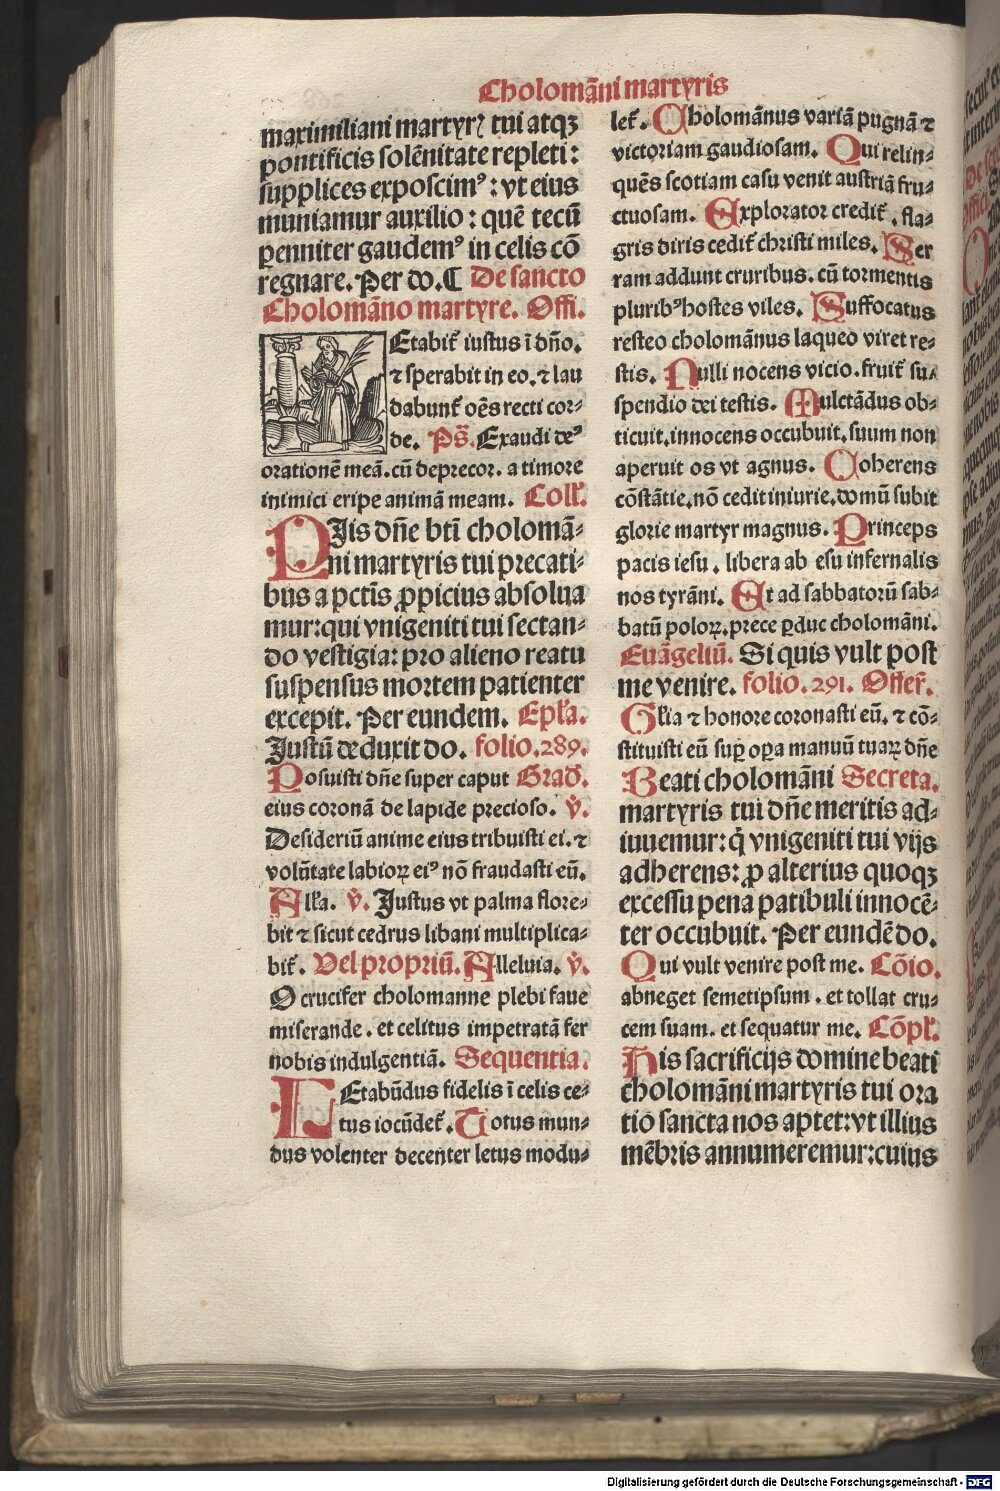 Cholomāni martyris
maximiliani martyrꝝ tui atqꝫ
pontificis solēnitate repleti:
supplices exposcimꝰ: vt eius
muniamur auxilio: quē tecū
penniter gaudemꝰ in celis cō
regnare. Per do. ℂ De sancto
Cholomāno martyre. Offi.
Etabit᷑ iustus ī dn̄o.
⁊ sperabit in eo. ⁊ lau
dabunt᷑ oēs recti cor-
de. Ps̄. Exaudi deꝰ
orationē meā. cū deprecor. a timore
inimici eripe animā meam. Coll̓.
PIis dn̄e bti̅ cholomā-
ni martyris tui precati-
bus a pctīs ꝓpicius absolua
mur: qui vnigeniti tui sectan-
do vestigia: pro alieno reatu
suspensus mortem patienter
excepit. Per eundem. Epl̓a.
Justū deduxit do. folio. 289.
Posuisti dn̄e super caput Grad̓.
eius coronā de lapide precioso. ℣.
Desideriū anime eius tribuisti ei. ⁊
volūtate labioꝝ eiꝰ nō fraudasti eū.
All̓a. ℣. Justus vt palma flore-
bit ⁊ sicut cedrus libani multiplica-
bit᷑. Vel propriū. Alleluia. ℣.
O crucifer cholomanne plebi faue
miserande. et celitus impetratā fer
nobis indulgentiā. Sequentia.
LEtabūdus fidelis ī celis ce-
tus iocūdet᷑. Totus mun-
dus volenter decenter letus modu-
let᷑. Cholomānus variā pugnā ⁊
victoriam gaudiosam. Qui relin-
quēs scotiam casu venit austriā fru-
ctuosam. Explorator credit᷑. fla-
gris diris cedit᷑ christi miles. Ser
ram addunt cruribus. cū tormentis
pluribꝰ hostes viles. Suffocatus
resteo cholomānus laqueo viret re-
stis. Nulli nocens vicio. fruit᷑ su-
spendio dei testis. Mulctādus ob-
ticuit. innocens occubuit. suum non
aperuit os vt agnus. Coherens
cōstātie. nō cedit iniurie. domū subit
glorie martyr magnus. Princeps
pacis iesu. libera ab esu infernalis
nos tyrāni. Et ad sabbatorū sab-
batū poloꝝ. prece ꝑduc cholomāni.
Euāgeliū. Si quis vult post
me venire. folio. 291. Offer̄.
Gl̓ia ⁊ honore coronasti eū. ⁊ cō-
stituisti eū suꝑ oꝑa manuū tuaꝝ dn̄e
Beati cholomāni Secreta.
martyris tui dn̄e meritis ad-
iuuemur: q̇ vnigeniti tui vijs
adherens: ꝓ alterius quoqꝫ
excessu pena patibuli innocē-
ter occubuit. Per eundē do.
Qui vult venire post me. Cōio.
abneget semetipsum. et tollat cru-
cem suam. et sequatur me. Cōpl̓.
His sacrificijs domine beati
cholomāni martyris tui ora
tio sancta nos aptet: vt illius
mēbris annumeremur: cuius
Digitalisierung gefördert durch die Deutsche Forschungsgemeinschaft - DFG